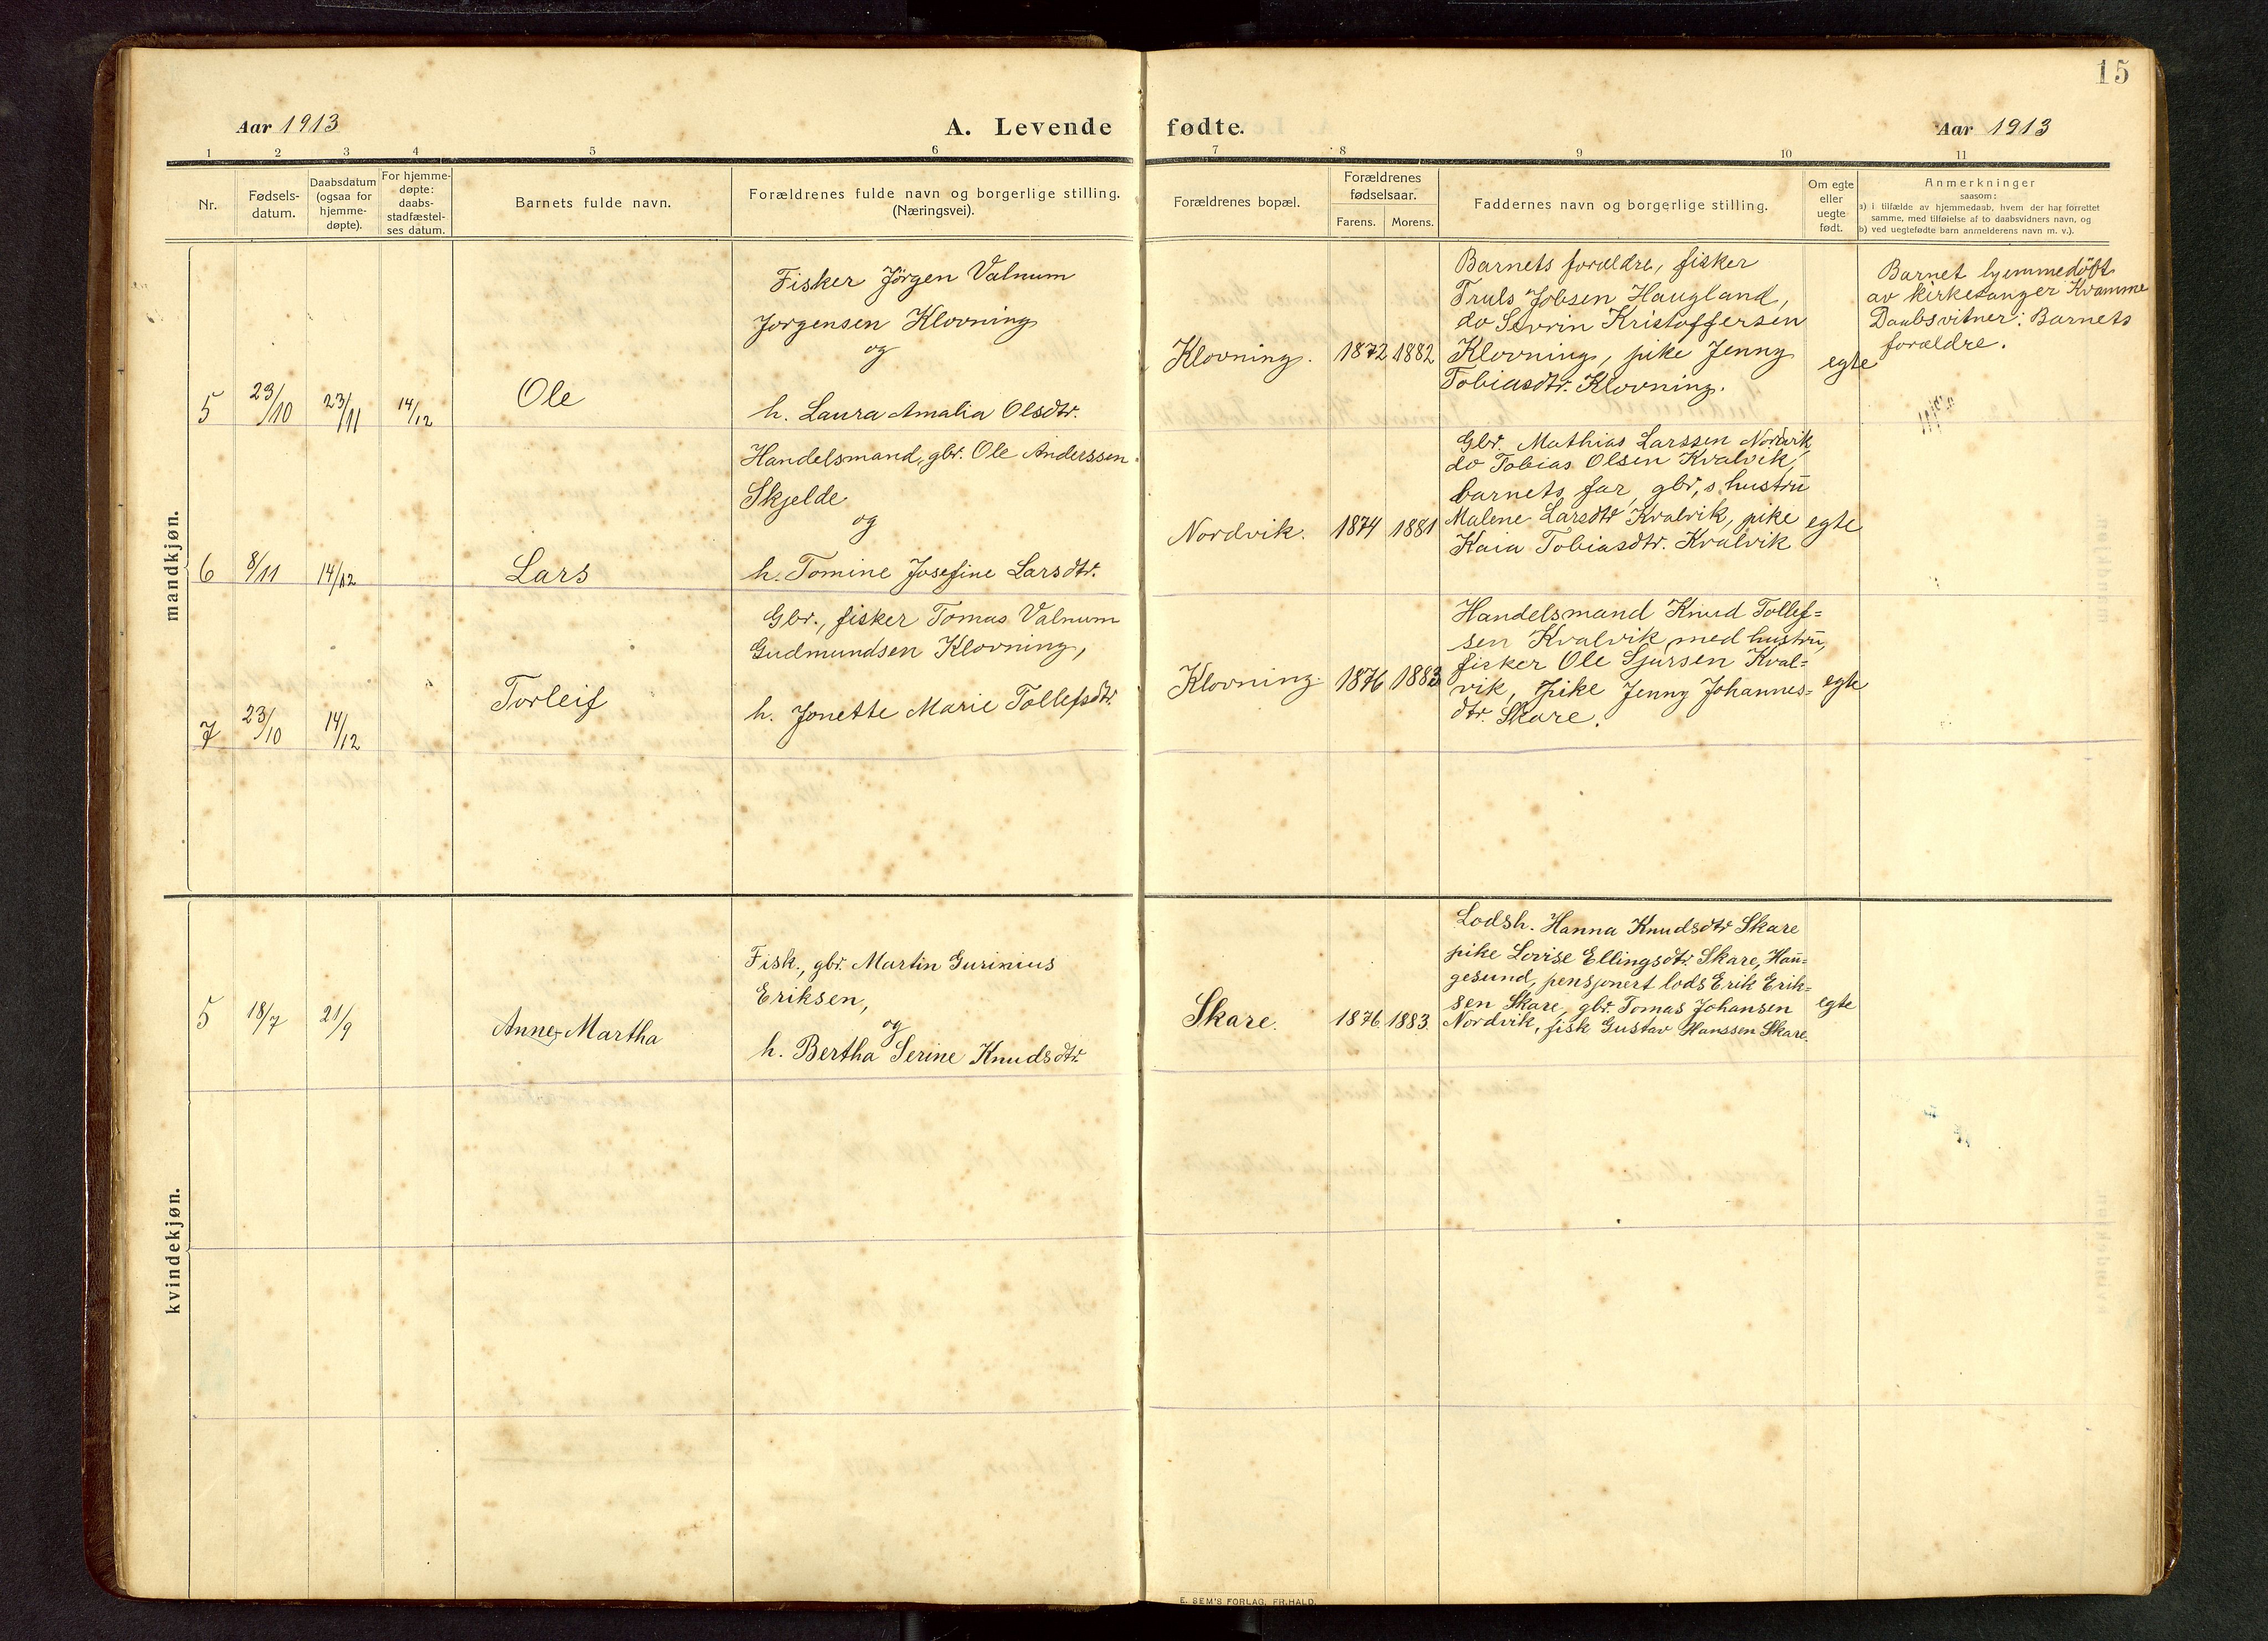 15
Aar 1913
A. Levende fødte.
Aar 1913
1 2 3 4 5 6 7 8 9 10 11
Nr.
Fødsels-
datum.
Daabsdatum
(ogsaa for
hjemme-
døpte).
For hjemme-
døpte:
daabs-
stadfæstel-
ses datum.
Barnets fulde navn.
Forældrenes fulde navn og borgerlige stilling.
(Næringsvei).
Forældrenes bopæl.
Forældrenes
fødselsaar.
Farens. Morens.
Faddernes navn og borgerlige stilling.
Om egte
eller
uegte
født.
Anmerkninger
saasom:
a) i tilfælde av hjemmedaab, hvem der har forrettet
samme, med tilføielse af to daabsvidners navn, og
b) ved uegtefødte barn anmelderens navn m. v.).
mandkjøn.
5
23/10
23/11
14/12
Ole
Fisker Jörgen Valnum
Jörgensen Klovning
og
h. Laura Amalia Olsdtr.
Klovning.
1872 1882
Barnets forældre, fisker
Truls Jobsen Haugland,
do Sevrin Kristoffersen
Klovning, pike Jenny
Tobiasdtr. Klovning.
egte
Barnet hjemmedöbt
av kirkesanger Kvamme
Daabsvitner: Barnets
forældre.
6
8/11
14/12
Lars
Handelsmand, gbr. Ole Anderssen
Skjelde
og
h. Tomine Josefine Larsdtr.
Nordvik.
1874 1881
Gbr. Mathias Larssen Nordvik,
do Tobias Olsen Kvalvik,
barnets far, gbr,s hustru
Malene Larsdtr Kvalvik, pike
Kaia Tobiasdtr. Kvalvik
egte
7
23/10
14/12
Torleif
Gbr., fisker Tomas Valnum
Gudmundsen Klovning,
h. Jonette Marie Tollefsdtr.
Klovning.
1876 1883
Handelsmand Knud Tollef=
sen Kvalvik med hustru,
fisker Ole Sjursen Kval=
vik, pike Jenny Johannes=
dtr. Skare.
egte
kvindekjøn.
5
18/7
21/9
Anne Martha
Fisk., gbr. Martin Gurinius
Eriksen,
og
h. Bertha Serine Knudsdtr.
Skare.
1876. 1883.
Lodsh. Hanna Knudsdtr Skare
pike Lovise Ellingsdtr. Skare, Hau=
gesund, pensjonert lods Erik Erik=
sen Skare, gbr. Tomas Johansen
Nordvik, fisk Gustav Hanssen Skare.
egte
E. SEM'S FORLAG, FR.HALD.